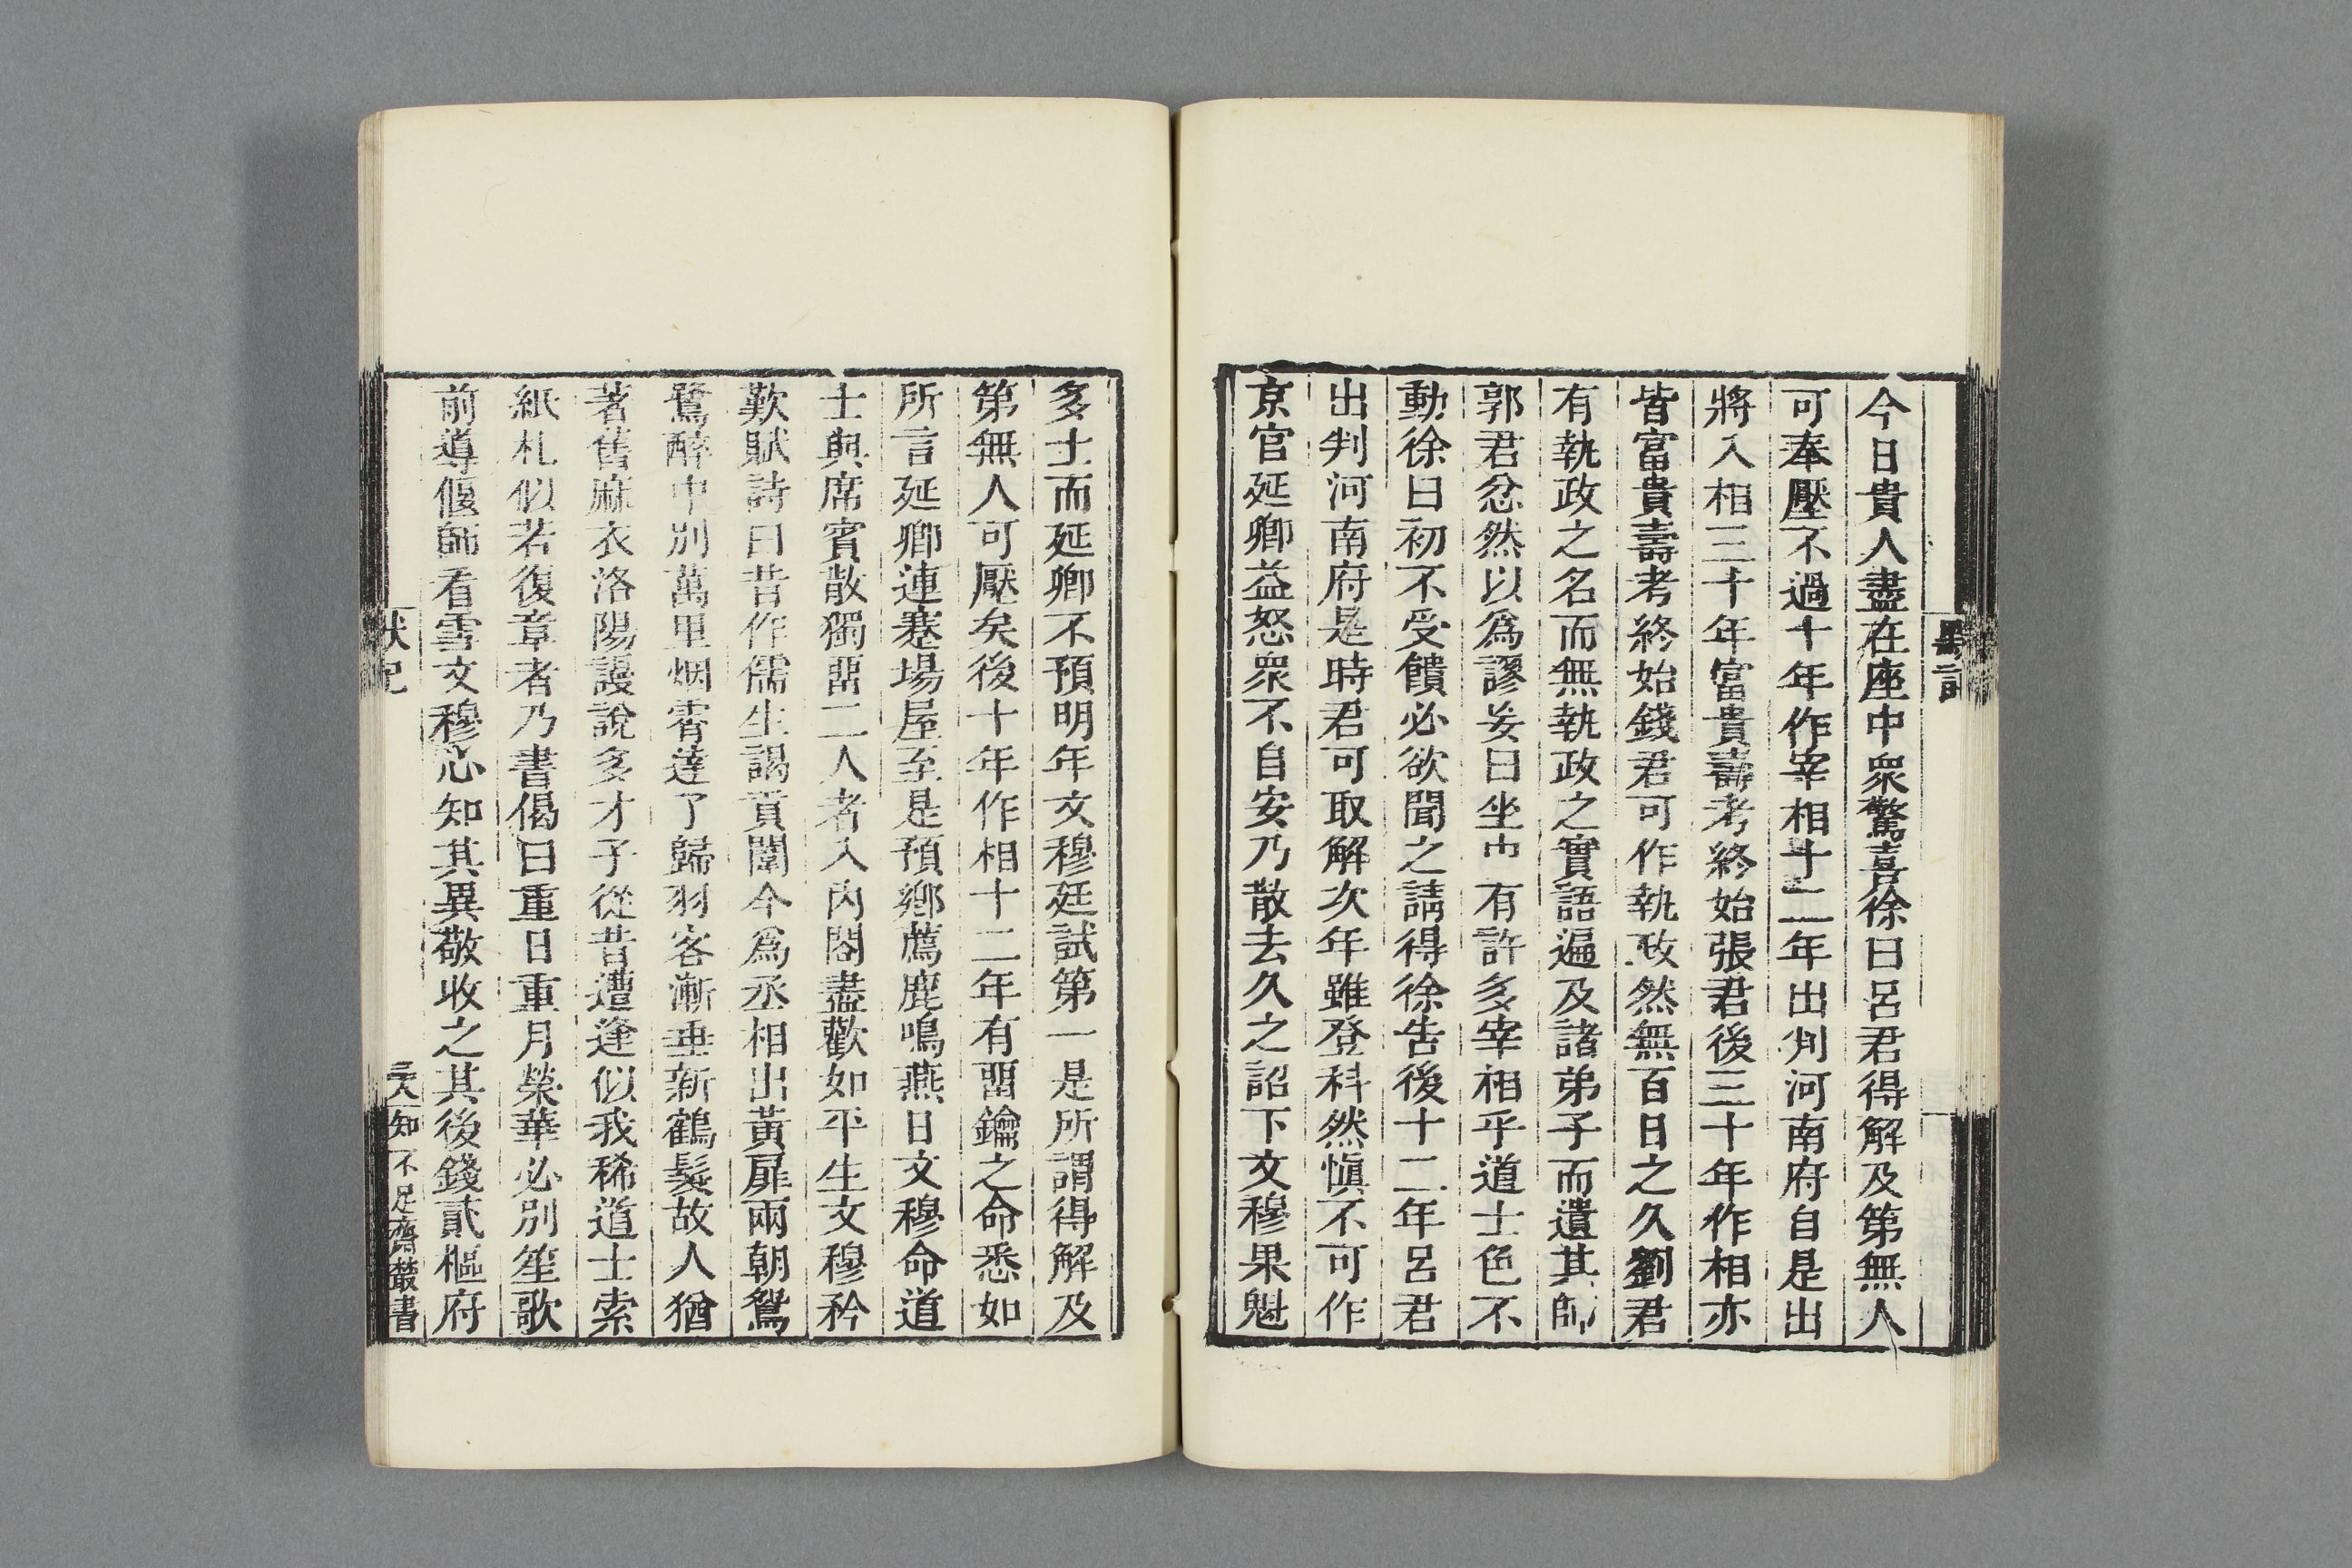 今日貴人盡在座中衆驚喜徐曰呂君得解及第無人
可奉壓不過十年作宰相十二年出判河南府自是出
將入相三十年富貴壽考終始張君後三十年作相亦
皆富貴壽考終始錢君可作執政然無百日之久劉君
有執政之名而無執政之實語遍及諸弟子而遺其師
郭君忿然以爲謬妄曰坐中有許多宰相乎道士色不
動徐曰初不受饋必欲聞之請得徐告後十二年呂君
出判河南府是時君可取解次年雖登科然愼不可作
京官延卿益怒衆不自安乃散去久之詔下文穆果魁
多士而延卿不預明年文穆廷試第一是所謂得解及
第無人可壓矣後十年作相十二年有畱鑰之命悉如
所言延卿連蹇場屋至是預鄕薦鹿鳴燕日文穆命道
士與席賓散獨畱二人者入內閤盡歡如平生文穆矜
歎賦詩曰昔作儒生謁貢闈今爲丞相出黃扉兩朝鴛
鷺醉中別萬里烟霄達了歸羽客漸垂新鶴髮故人猶
著舊麻衣洛陽謾說多才子從昔遭逢似我稀道士索
紙札似若復章者乃書偈曰重日重月榮華必別笙歌
前導偃師看雪文穆心知其異敬收之其後錢貳樞府
知不足齋叢書